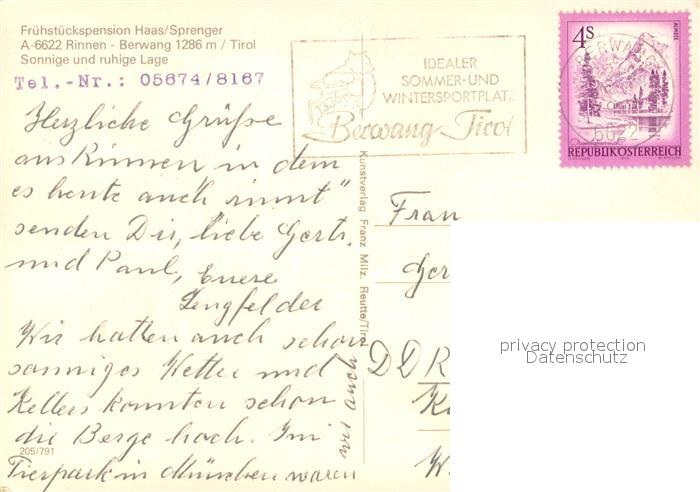 Frühstückspension Haas/Sprenger
A-6622 Rinnen - Berwang 1286 m / Tirol
Sonnige und ruhige Lage
Tel.-Nr.: 05674/8167
Herzliche Grüße
aus Rinnen in dem
es heute auch rinnt"
senden Dir, liebe Gert.
und Paul, Euere
Lengfelder
Wir hatten auch schon
sonniges Wetter und
Kellers konnten schon
die Berge hoch. Im
Tierpark in München waren
wir auch
205/791
Kunstverlag Franz Milz, Reutte/Tirol
1336m
IDEALER
SOMMER-UND
WINTERSPORTPLATZ
Berwang Tirol
4S
ALMSEE
BERWANG
6622
REPUBLIK ÖSTERREICH
Frau
Ger
DDR
W
privacy protection
Datenschutz